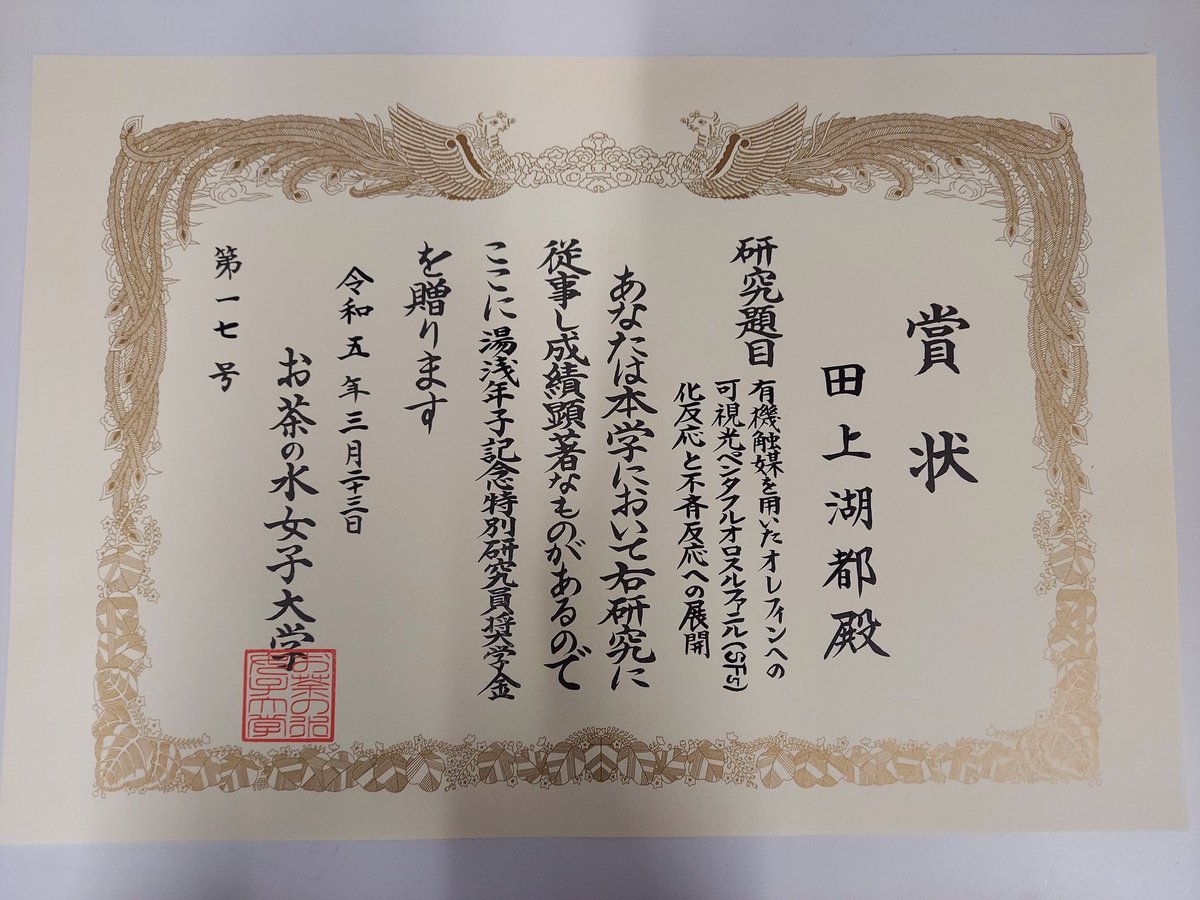 賞状
田上湖都殿
研究題目
有機触媒を用いたオレフィンへの
可視光ペンタフルオロスルファニル(SF5)
化反応と不斉反応への展開
あなたは本学において右研究に
従事し成績顕著なものがあるので
ここに湯浅年子記念特別研究員奨学金
を贈ります
令和五年三月二十三日
お茶の水女子大学
お茶の水女子大学
第一七号